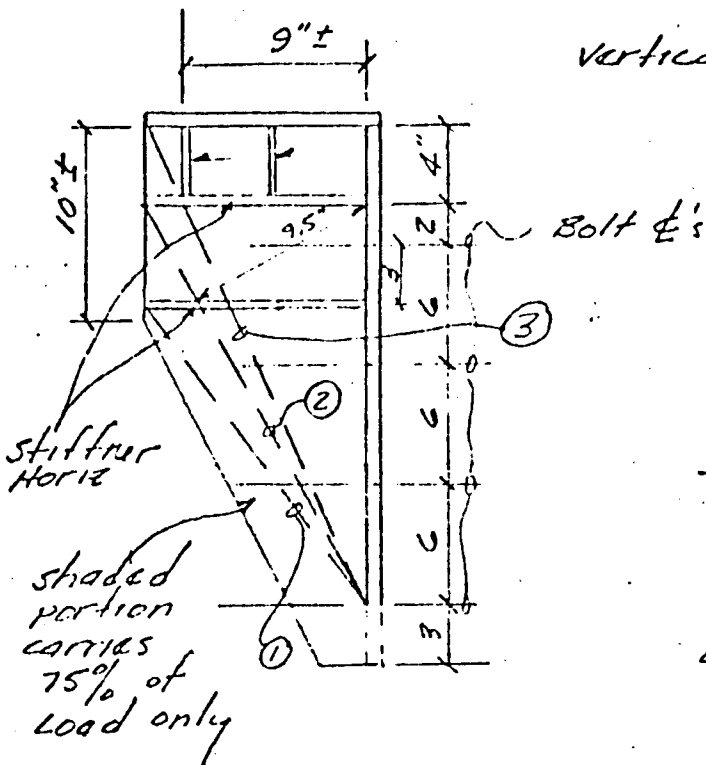 9"±
vertica
10"±
4"
2
Bolt ℄'s
9.5"
3
6
③
②
6
stiffner
Horiz
6
shaded
portion
carries
75% of
Load only
①
3